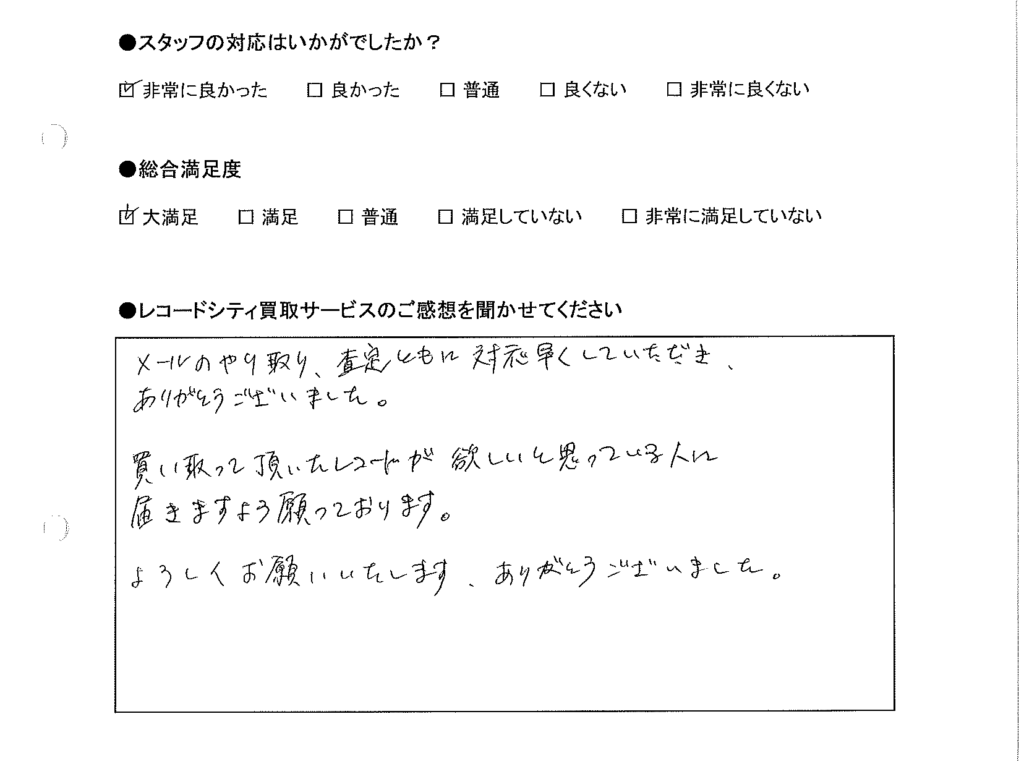 ●スタッフの対応はいかがでしたか？
☑ 非常に良かった □ 良かった □ 普通 □ 良くない □ 非常に良くない
●総合満足度
☑ 大満足 □ 満足 □ 普通 □ 満足していない □ 非常に満足していない
●レコードシティ買取サービスのご感想を聞かせてください
メールのやり取り、査定ともに対応早くしていただき、
ありがとうございました。
買い取って頂いたレコードが欲しいと思っている人に
届きますよう願っております。
よろしくお願いいたします、ありがとうございました。